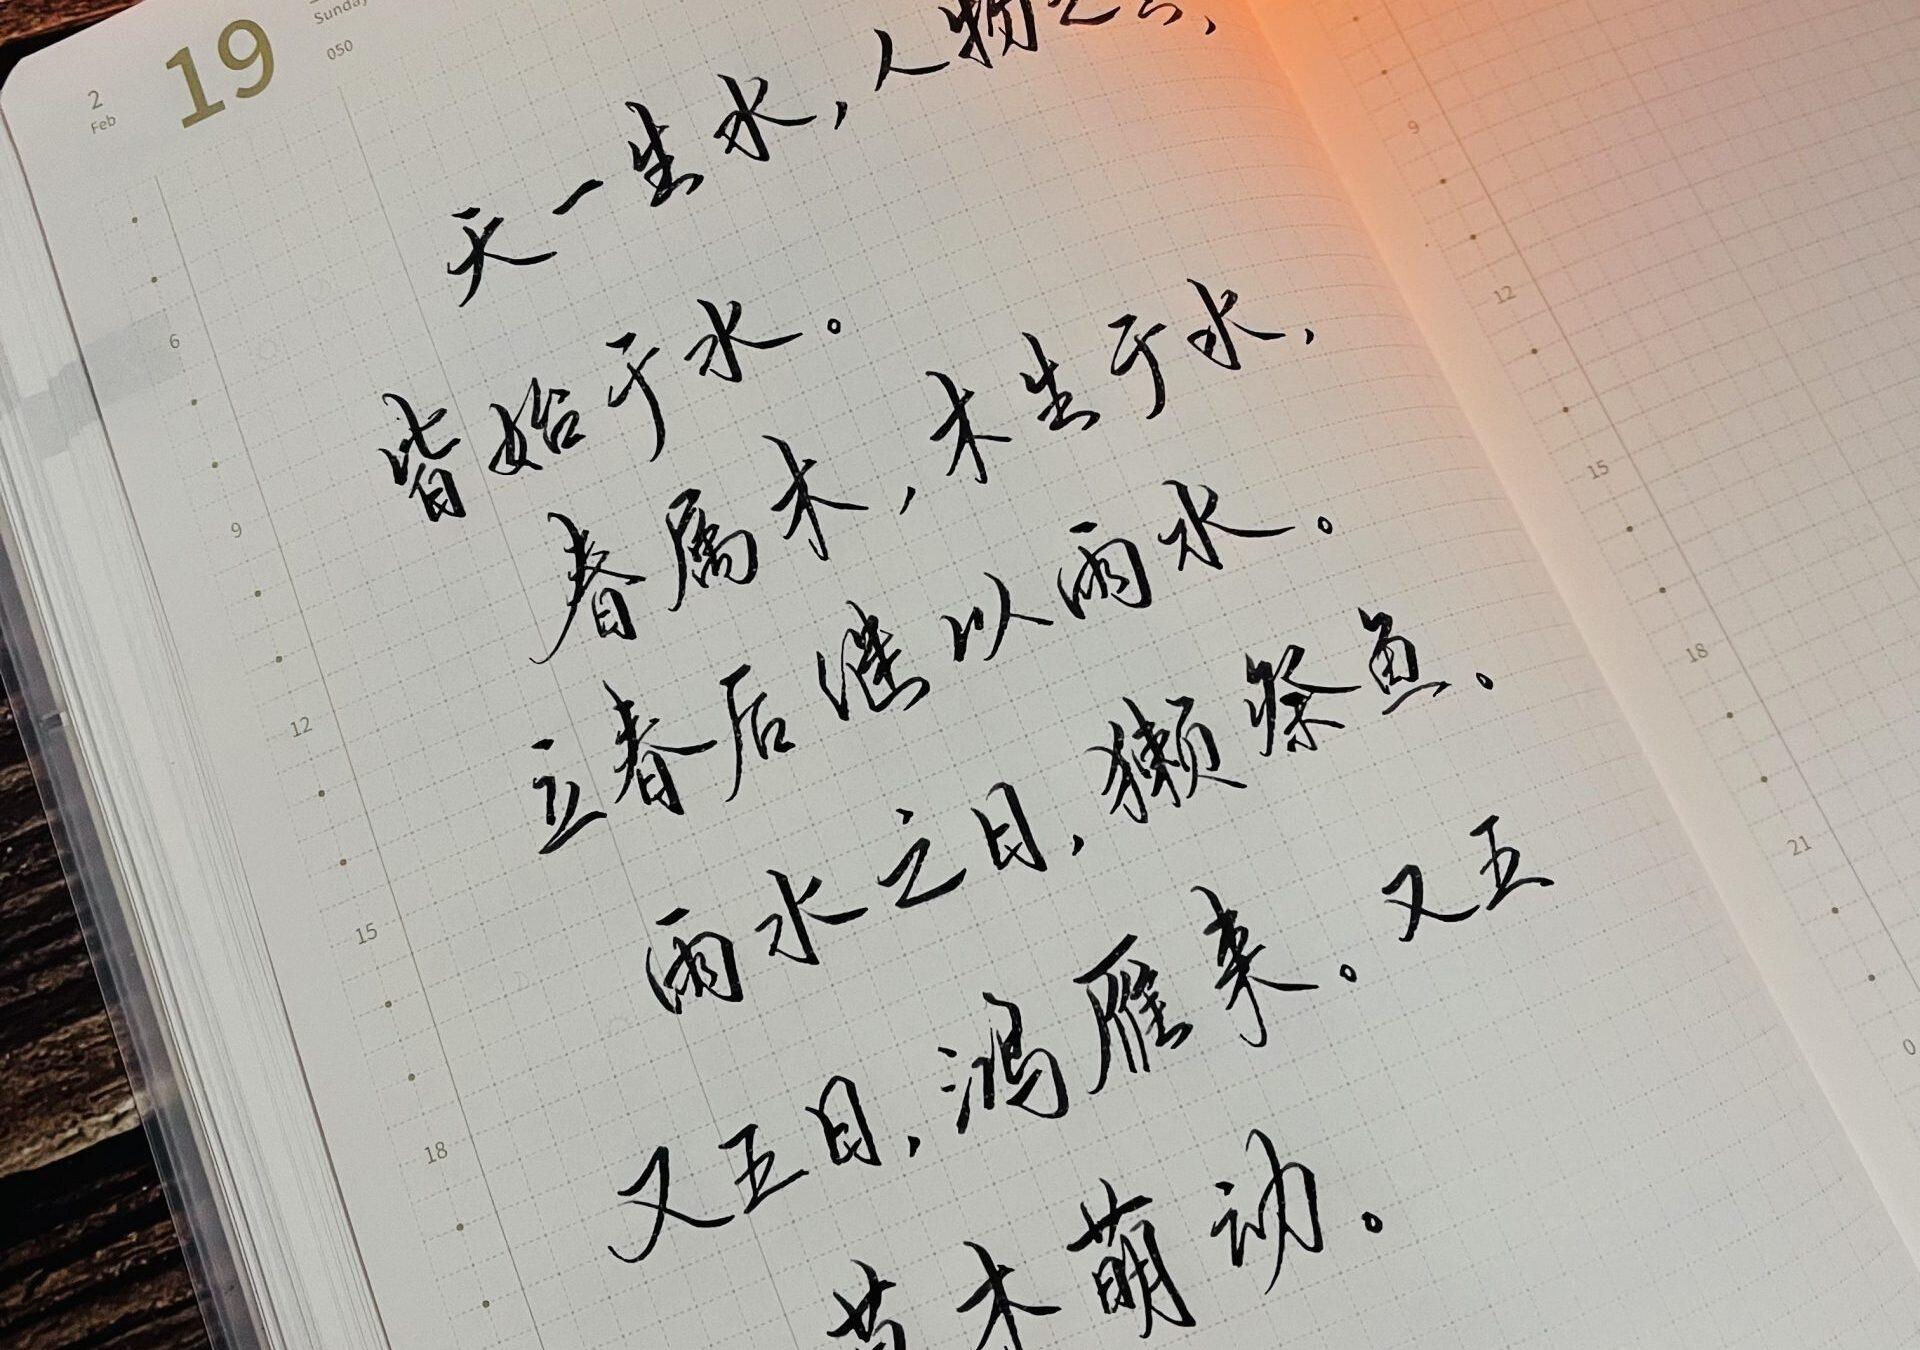 2
Feb
19
Sunday
050
天一生水，人物之
皆始于水。
春属木，木生于水，
立春后继以雨水。
雨水之日，獭祭鱼。
又五日，鸿雁来。又五
草木萌动。
6
9
12
15
18
9
12
15
18
21
0